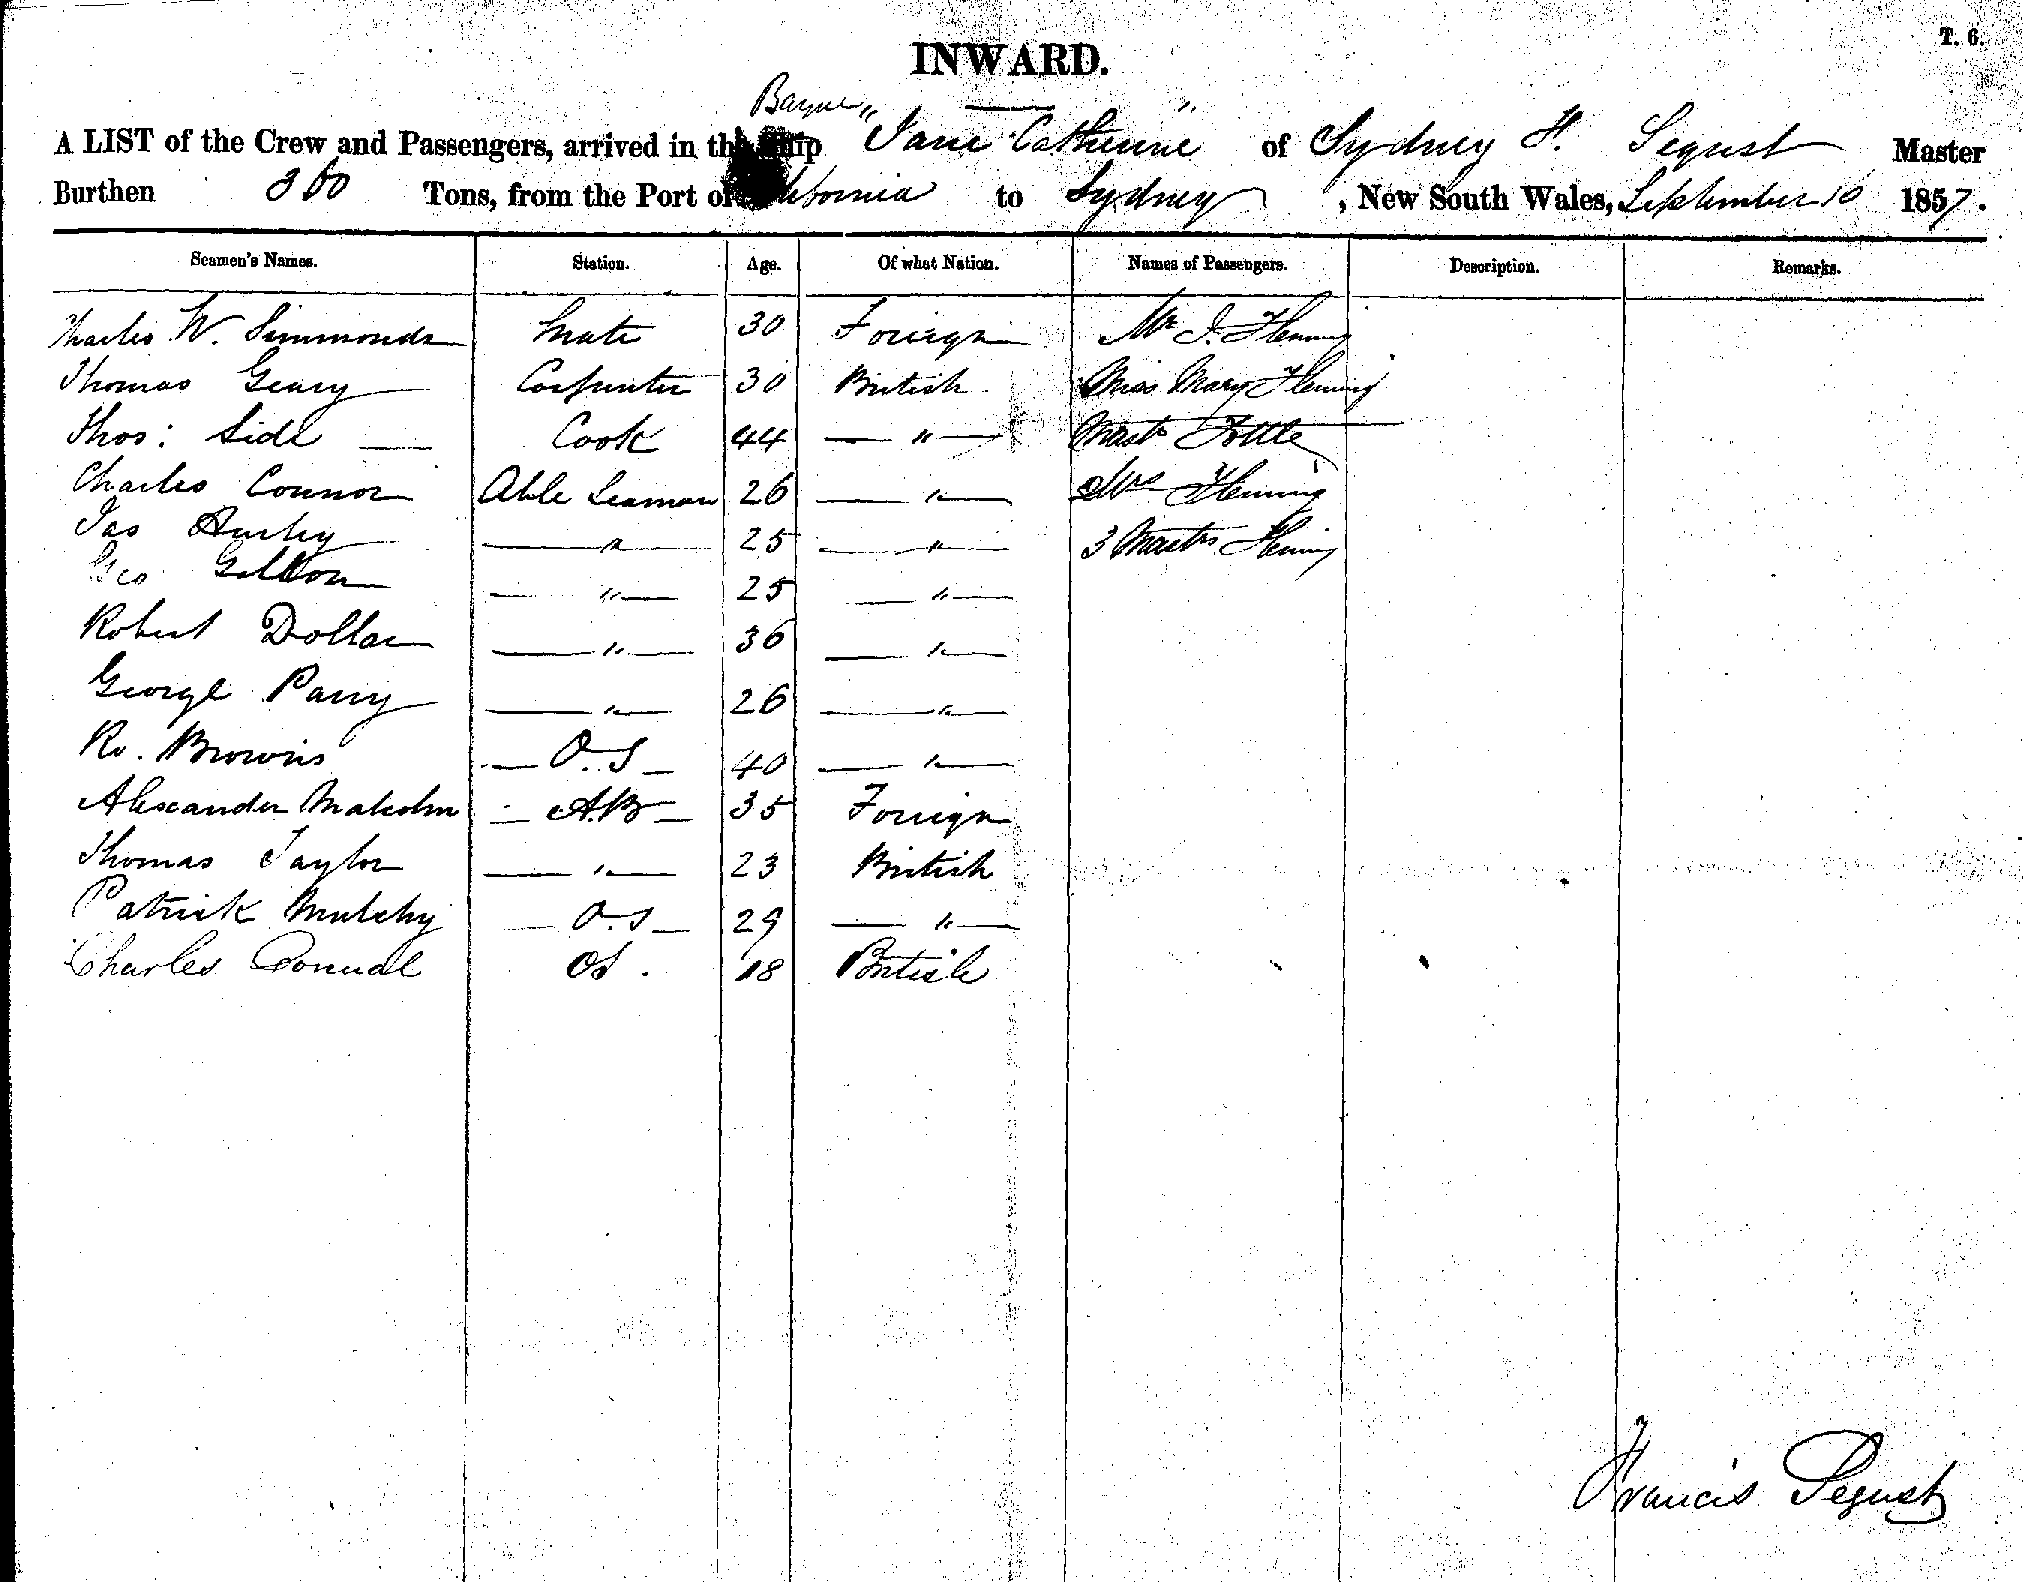 T. 6.
INWARD.
Barque
A LIST of the Crew and Passengers, arrived in the Ship "Jane Catherine" of Sydney F. Segust Master
Burthen 360 Tons, from the Port of to Sydney, New South Wales, September 10 1857.
Seamen's Names. Station. Age. Of what Nation. Names of Passengers. Description. Remarks.
Charles W. Simmonds Mate 30 Foreign Mr J. Fleming
Thomas Geary Carpenter 30 British Miss Mary Fleming
Thos: Side Cook 44 — " — Mast
Charles Connor Able Seaman 26 — " — Mrs Fleming
Jas Hurley — " — 25 — " — 3 Masters Fleming
Geo — " — 25 — " —
Robert Dollar — " — 36 — " —
George Parry — " — 26 — " —
Ro. Browns — O.S — 40 — " —
Alexander Malcolm — A.B — 35 Foreign
Thomas Taylor — " — 23 British
Patrick Mulchy — O.S — 29 — " —
Charles OS. 18 British
Francis Segust